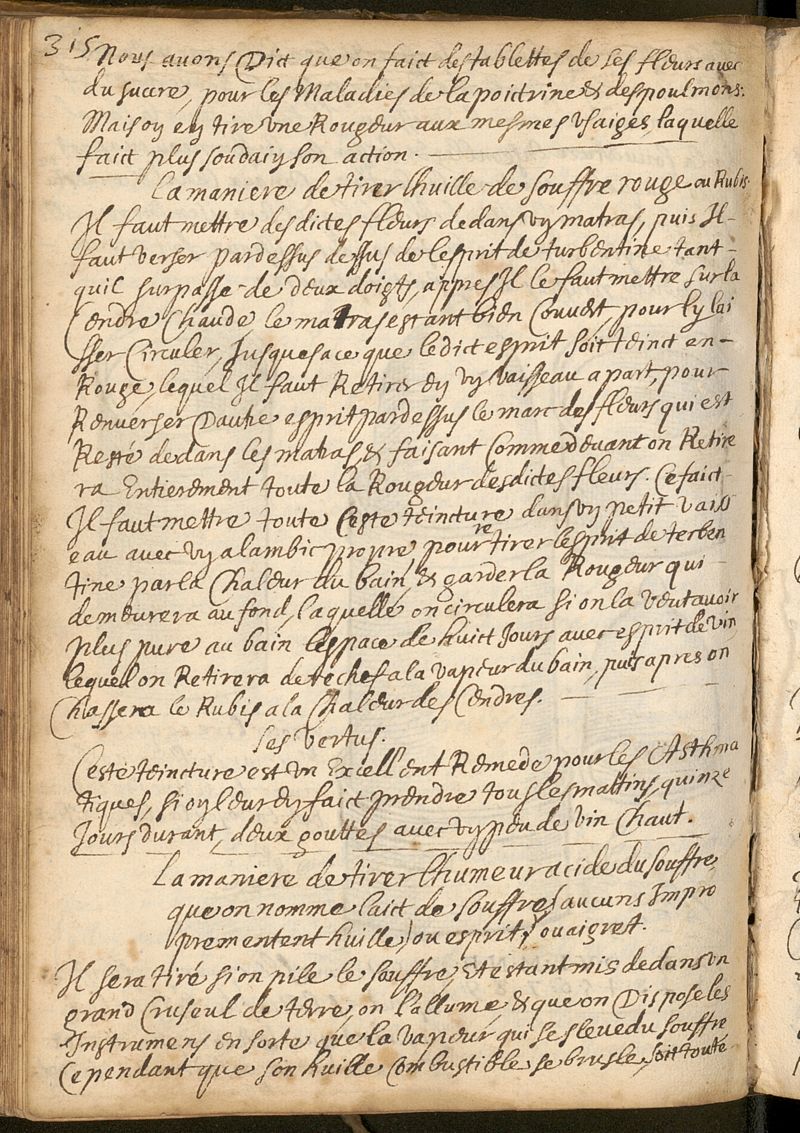 315
Nous avons Dict que on faict des tablettes de ses fleurs avec
du sucre, pour les Maladies de la poictrine & des poulmons:
Mais on en tire une Rougeur aux mesmes usaiges, laquelle
faict plus soudain son action.
La maniere de tirer lhuille de souffre rouge ou Rubis
Il faut mettre desdictes fleurs dedans un matras, puis Il
faut verser par dessus dessus de lesprit de turbentine tant
quil surpasse de deux doigts, appres Il le faut mettre sur la
Cendre Chaude le matras estant bien Couvert, pour ly lai
sser Circuler, Jusques a ce que ledict esprit soit teinct en
Rouge, lequel Il faut Retirer en un vaisseau a part, pour
Renverser Dautre esprit par dessus le marc des fleurs qui est
Resté dedans les matras & faisant Comme devant on Retire
ra Entierement toute la Rougeur desdictes fleurs. Ce faict
Il faut mettre toute Ceste teincture dans un petit vaiss
eau avec un alambic propre pour retirer lesprit de terben
tine par la Chaleur du bain, & garder la Rougeur qui
demeurera au fond, laquelle on circulera si on la veut avoir
plus pure au bain lespace de huict Jours avec esprit de vin
lequel on Retirera derechef a la vapeur du bain, puis apres on
Chassera le Rubis a la Chaleur des Cendres.
Ses Vertus.
Ceste teincture est un Excellent Remede pour les Asthma
tiques, si on leur en faict prendre tous les mattins quinze
Jours durant, deux gouttes avec un peu de vin Chaut.
La maniere de tirer lhumeur acide du souffre
que on nomme laict de souffre (aucuns Impro
prementent huille) ou esprit, ou aigret.
Il sera tiré si on pile le souffre, Et estant mis dedans un
grand Cruseul de terre, on l'allume, & que on Dispose les
Instrumens en sorte que la vapeur qui seslevedu souffre
Cependant que son huille Combustible se brusle, soit toute